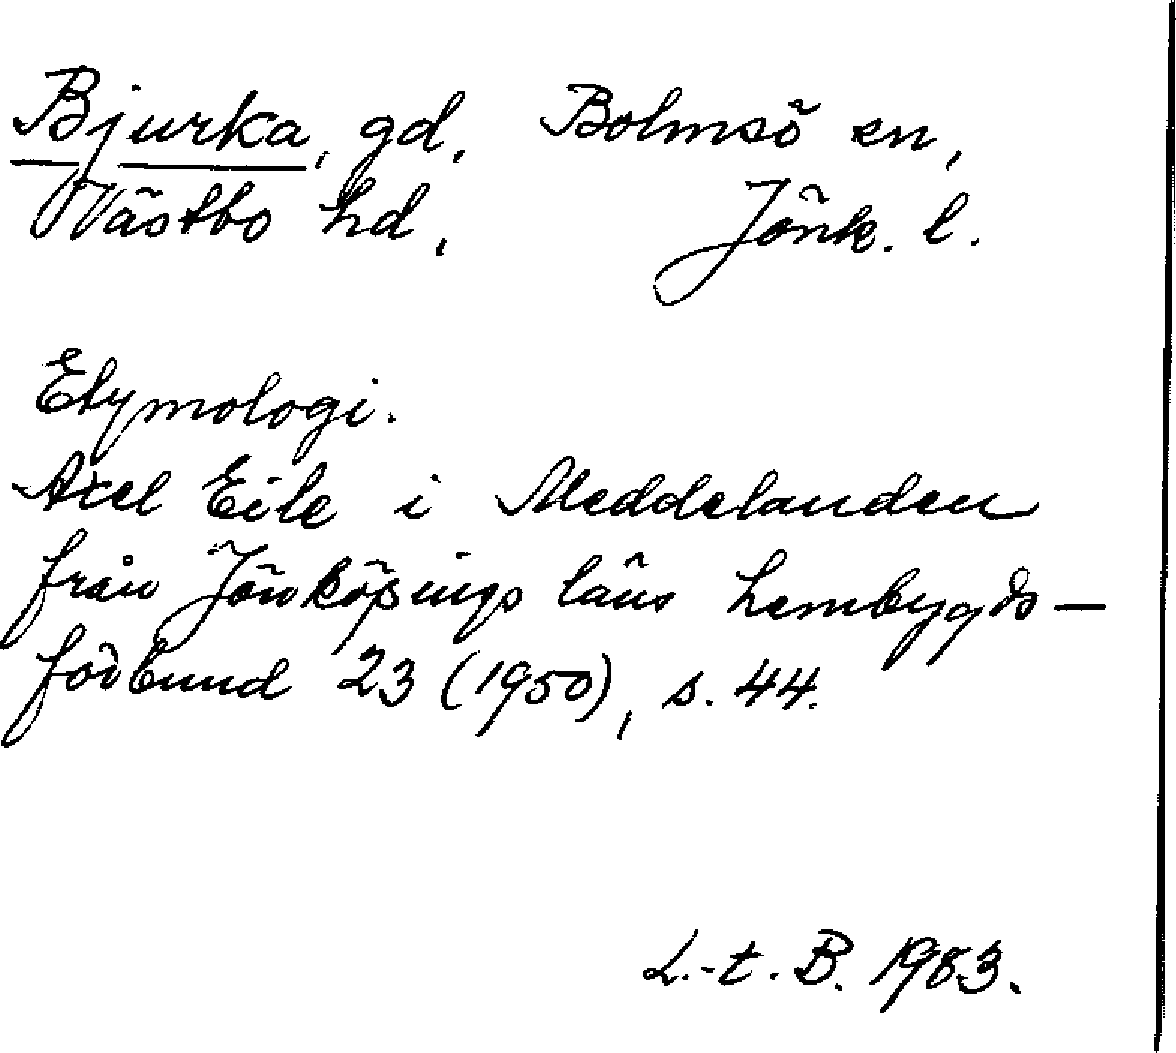 Bjurka, gd, Bolmsö sn,
Västbo hd, Jönk. l.
Etymologi.
Axel Eile i Meddelanden
från Jönköpings läns hembygds-
förbund 23 (1950), s. 44.
L.-t. B. 1983.